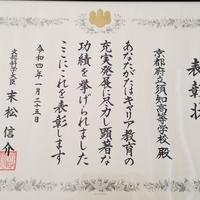 表彰状
京都府立須知高等学校 殿
あなたがたはキャリア教育の
充実発展に尽力し顕著な
功績を挙げられました
ここにこれを表彰します
令和四年一月二十五日
文部科学大臣 末松信介